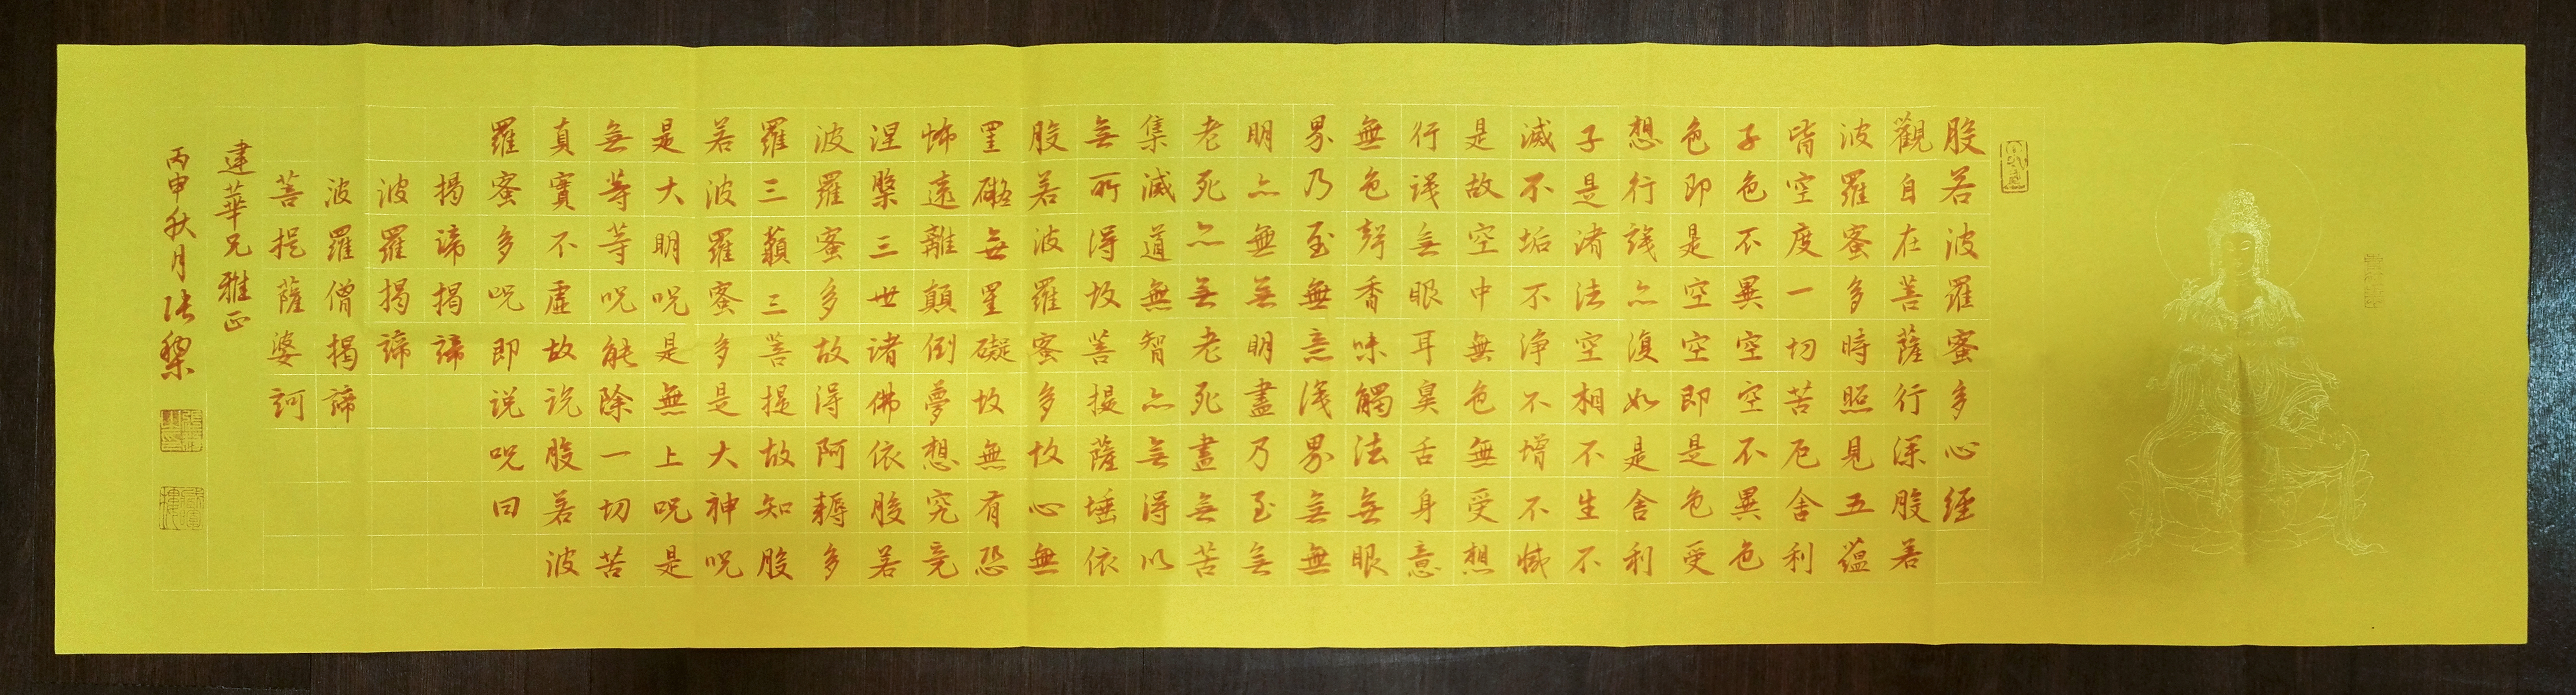 般若波羅蜜多心經
觀自在菩薩行深般若
波羅蜜多時照見五蘊
皆空度一切苦厄舍利
子色不異空空不異色
色即是空空即是色受
想行識亦復如是舍利
子是諸法空相不生不
滅不垢不淨不增不減
是故空中無色無受想
行識無眼耳鼻舌身意
無色聲香味觸法無眼
界乃至無意識界無無
明亦無無明盡乃至無
老死亦無老死盡無苦
集滅道無智亦無得以
無所得故菩提薩埵依
般若波羅蜜多故心無
罣礙無罣礙故無有恐
怖遠離顛倒夢想究竟
涅槃三世諸佛依般若
波羅蜜多故得阿耨多
羅三藐三菩提故知般
若波羅蜜多是大神咒
是大明咒是無上咒是
無等等咒能除一切苦
真實不虛故說般若波
羅蜜多咒即說咒曰
揭諦揭諦
波羅揭諦
波羅僧揭諦
菩提薩婆訶
建華兄雅正
丙申秋月張黎